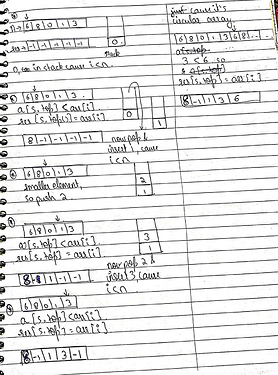 n→ 6 8 0 1 3
res→ -1 -1 -1 -1 -1
0
stack
0, too in stack cause i<n
6 8 0 1 3
a[s.top] < arr[i]
res[s.top] = arr[i]
0
1
8 -1 -1 -1 -1
now pop 0
insert 1, cause
i<n
6 8 0 1 3
smaller element,
so push 2
2
1
6 8 0 1 3
a[s.top] < arr[i]
res[s.top] = arr[i]
3
1
8 -1 1 -1 -1
now pop 2 &
insert 3, cause
i<n
6 8 0 1 3
a[s.top] < arr[i]
res[s.top] = arr[i]
8 -1 1 3 -1
just cause it's
circular array
6 8 0 1 3 6 8
a[s.top
3 < 6 so
res[s.top] = arr[i]
8 -1 1 3 6